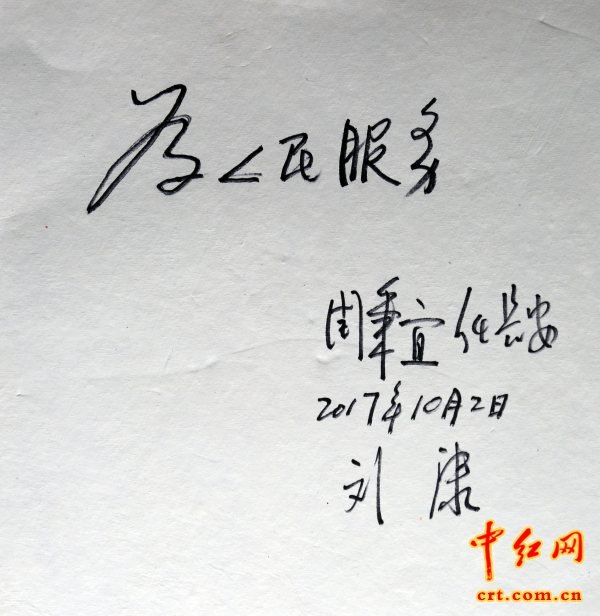 为人民服务
周秉宜 任长安
2017年10月2日
刘康
中红网
crt.com.cn